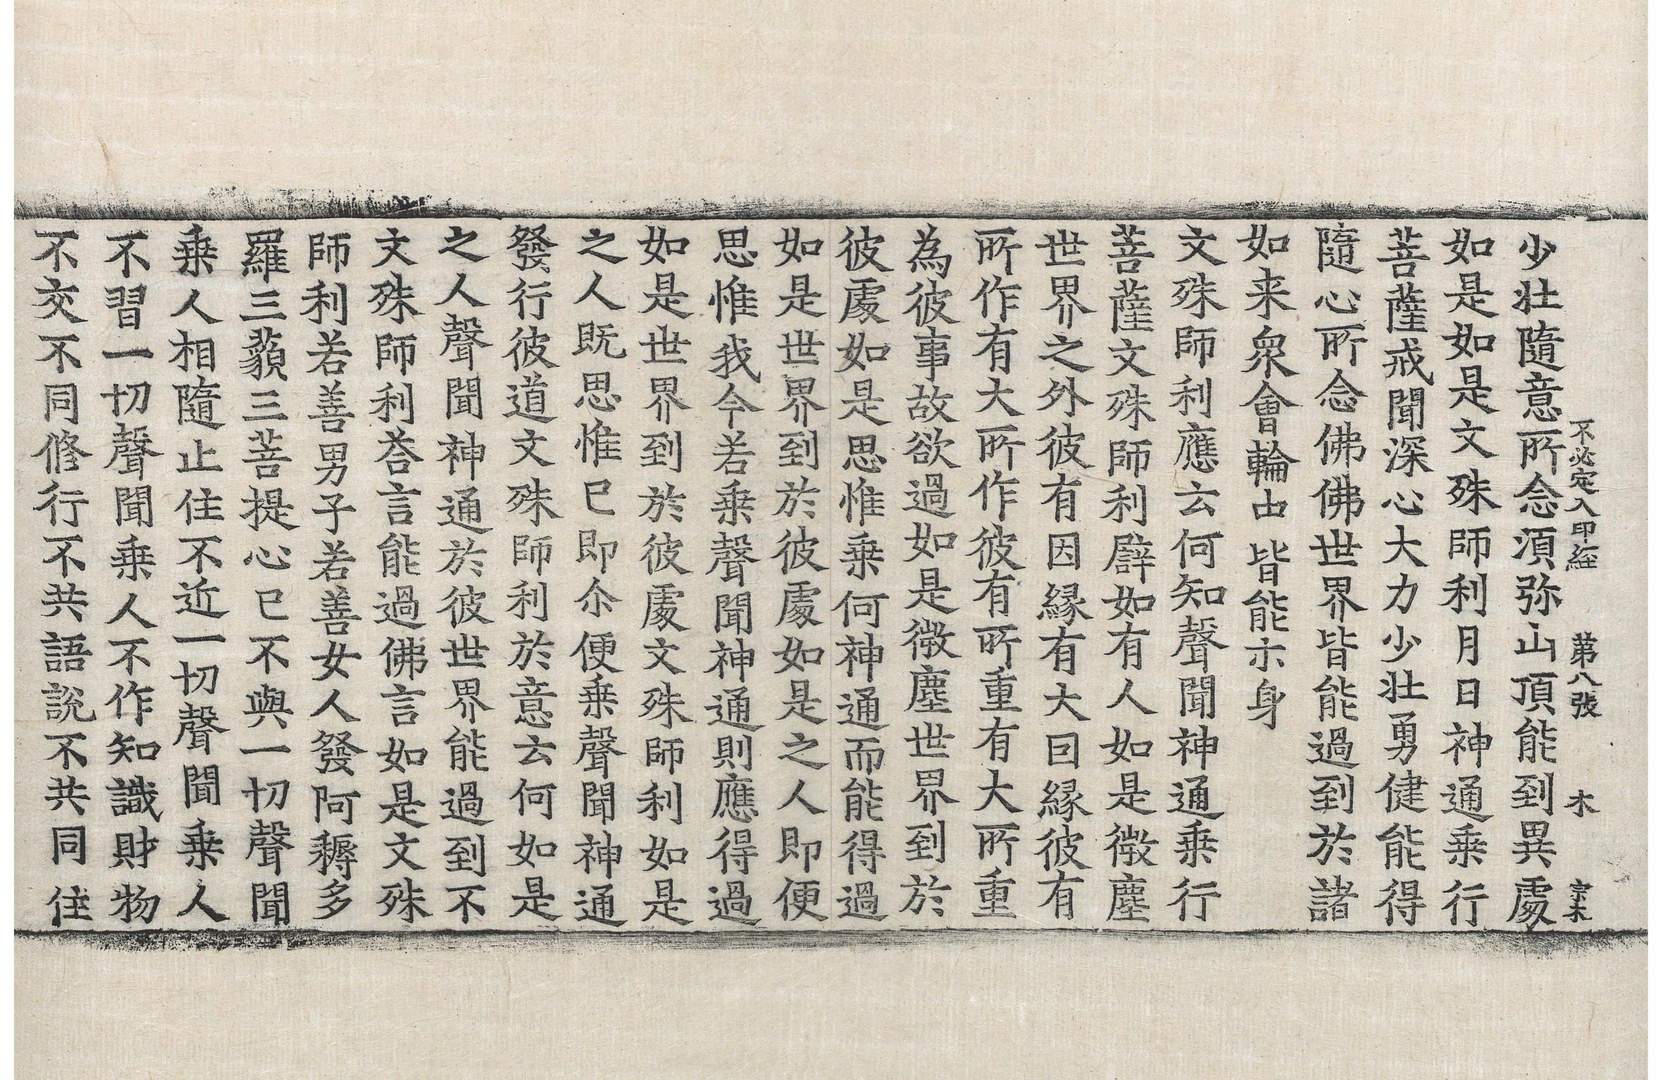 不必定入印經 第八張 木
少壯隨意所念湏弥山頂能到異處
如是如是文殊師利月日神通乗行
菩薩戒聞深心大力少壯勇健能得
隨心所念佛佛世界皆能過到於諸
如来衆會輪中皆能示身
文殊師利應云何知聲聞神通乗行
菩薩文殊師利辟如有人如是微塵
世界之外彼有因縁有大因縁彼有
所作有大所作彼有所重有大所重
為彼事故欲過如是微塵世界到於
彼處如是思惟乗何神通而能得過
如是世界到於彼處如是之人即便
思惟我今若乗聲聞神通則應得過
如是世界到於彼處文殊師利如是
之人既思惟已即尒便乗聲聞神通
發行彼道文殊師利於意云何如是
之人聲聞神通於彼世界能過到不
文殊師利荅言能過佛言如是文殊
師利若善男子若善女人發阿耨多
羅三藐三菩提心已不與一切聲聞
乗人相隨止住不近一切聲聞乗人
不習一切聲聞乗人不作知識財物
不交不同修行不共語說不共同住